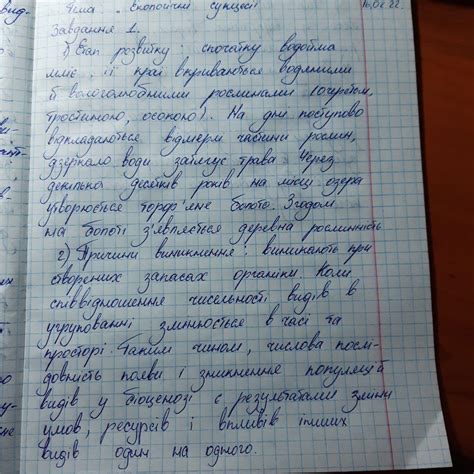 Тема: Екологічні сукцесії 16.02.22.
Завдання 1.
1) Етап розвитку: спочатку водойма
міліє, її краї вкриваються водяними
й вологолюбними рослинами (очеретом,
тростиною, осокою). На дні поступово
відкладаються відмерлі частини рослин,
дзеркало води затягує трава. Через
декілька десятків років на місці озера
утворюється торф'яне болото. Згодом
на болоті з'являється деревна рослинність
2) Причини виникнення: виникають при
створених запасах органіки. Коли
співвідношення чисельності видів в
угрупованні змінюється в часі та
просторі. Таким чином, числова послі-
довність появи і зникнення популяцій
видів у біоценозі є результатами зміни
умов, ресурсів і впливів інших
видів один на одного.